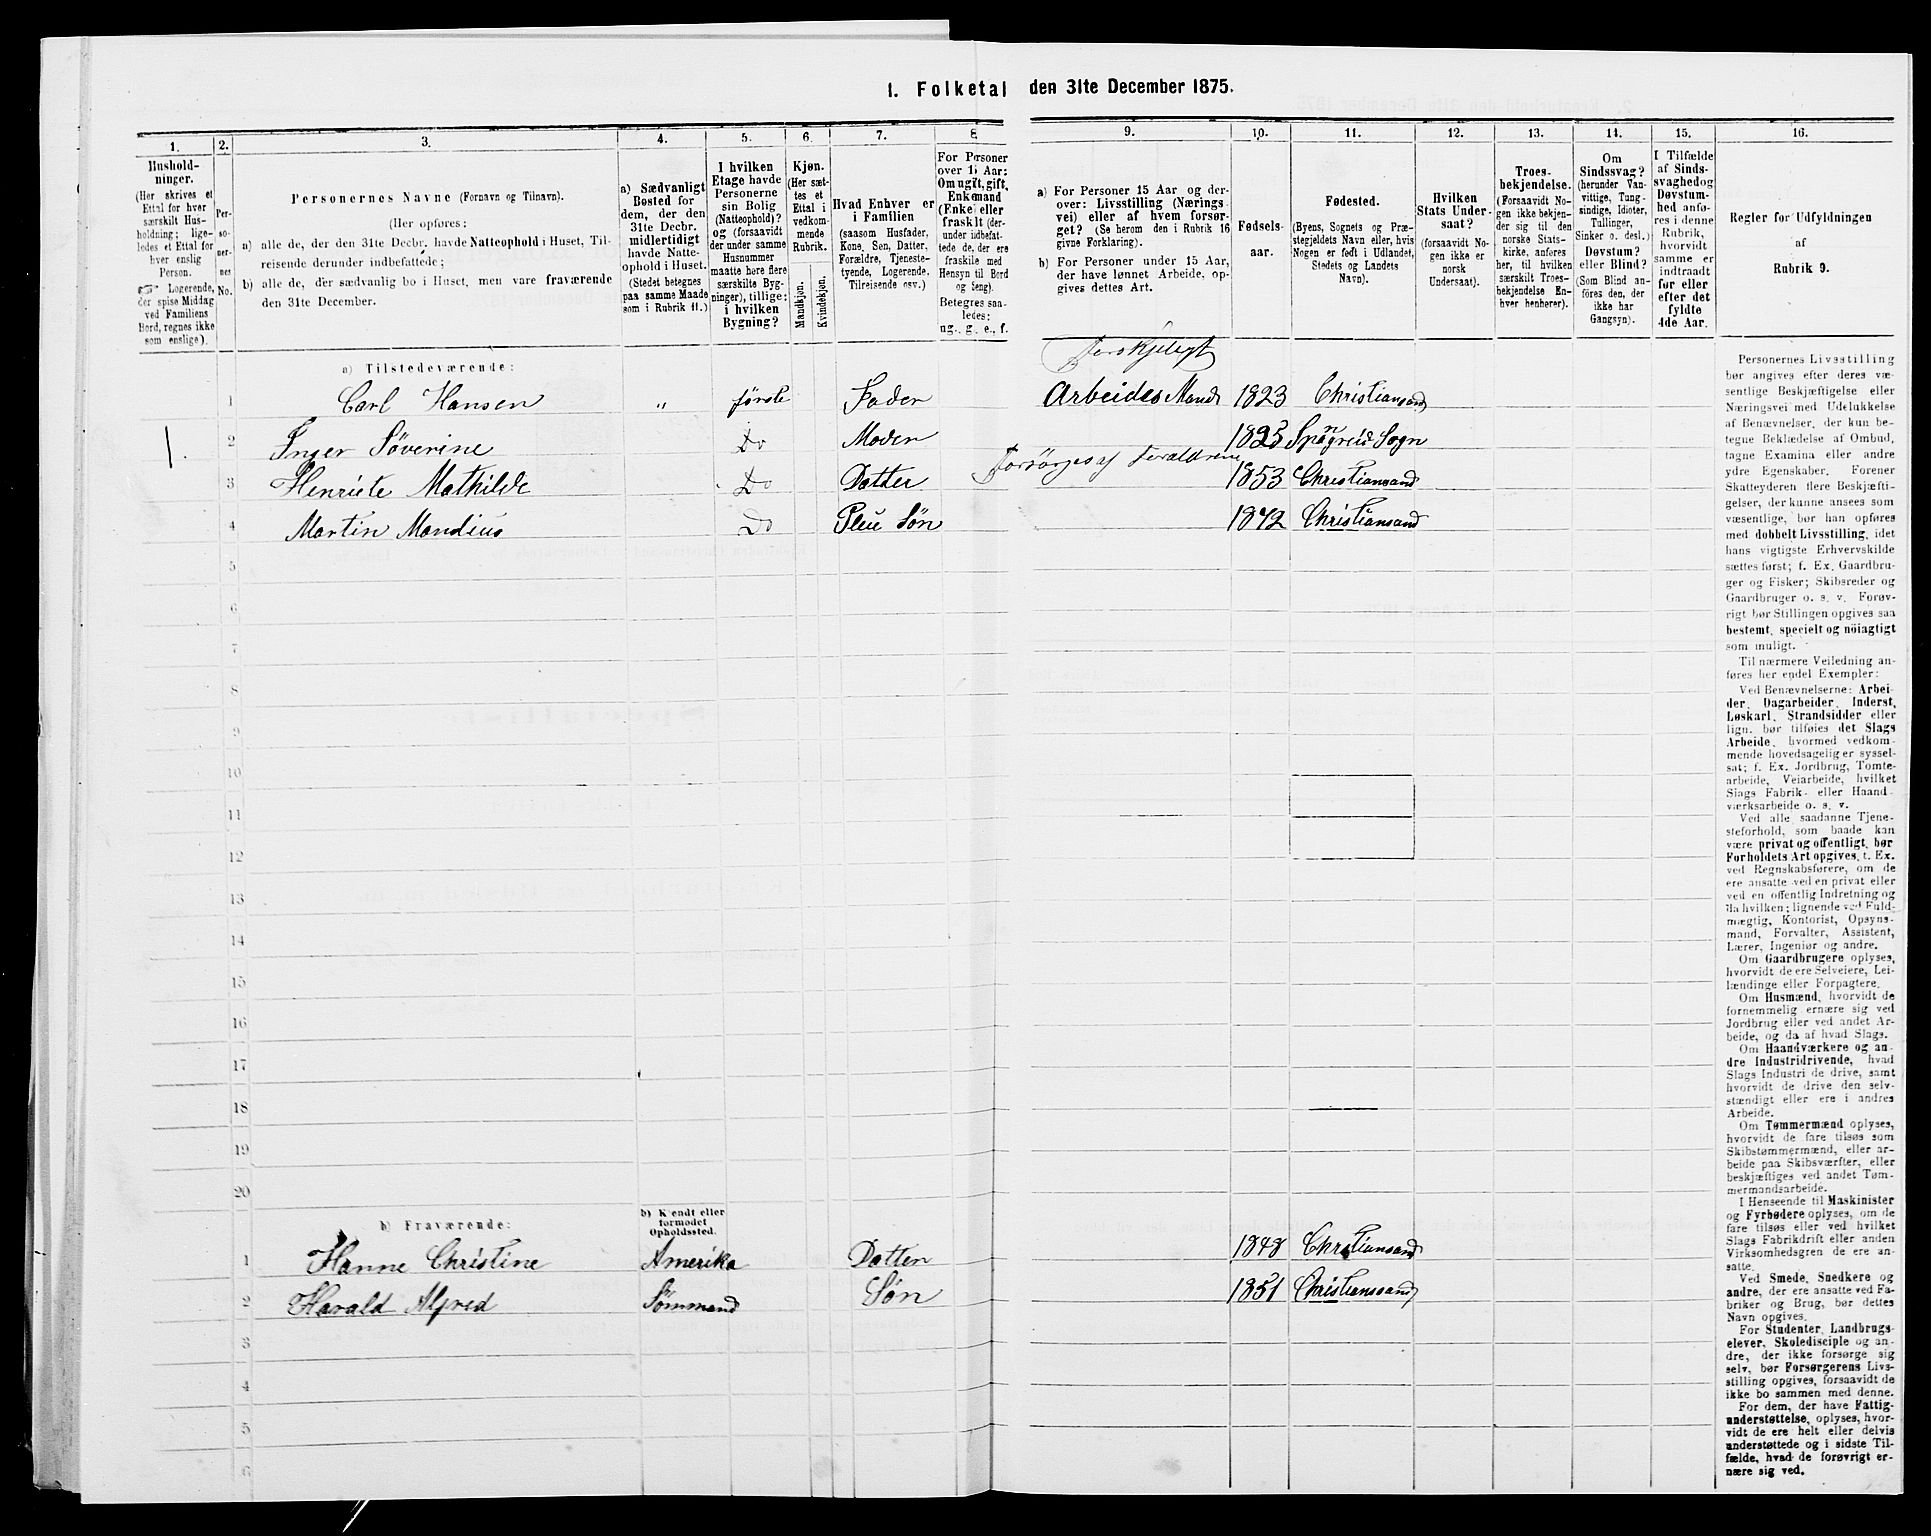 1. Folketal den 31te December 1875.
1.
2.
3.
4.
5.
6.
7.
8
9.
10.
11.
12.
13.
14.
15.
16.
Hushold-
ninger.
(Her skrives et
Ettal for hver
særskilt Hus-
holdning; lige-
ledes et Ettal for
hver enslig
Person.
☞ Logerende,
der spise Middag
ved Familiens
Bord, regnes ikke
som enslige).
Per-
so-
ner-
nes
No.
Personernes Navne (Fornavn og Tilnavn).
(Her opføres:
a) alle de, der den 31te Decbr. havde Natteophold i Huset, Til-
reisende derunder indbefattede;
b) alle de, der sædvanlig bo i Huset, men vare fraværende
den 31te December.
a) Sædvanligt
Bosted for
dem, der den
31te Decbr.
midlertidigt
havde Natte-
ophold i Huset.
(Stedet betegnes
paa samme Maade
som i Rubrik 11.)
I hvilken
Etage havde
Personerne
sin Bolig
(Natteophold)?
og (forsaavidt
der under samme
Husnummer
maatte høre flere
særskilte Byg-
ninger), tillige:
i hvilken
Bygning?
Kjøn.
(Her sæt-
tes et
Ettal i
vedkom-
mende
Rubrik.
Mandkjøn.
Kvindekjøn.
Hvad Enhver er
i Familien
(saasom Husfader,
Kone, Søn, Datter,
Forældre, Tjeneste-
tyende, Logerende,
Tilreisende osv.)
For Personer
over 15 Aar:
Om ugift, gift,
Enkemand
(Enke) eller
fraskilt (der-
under indbefat-
tede de, der ere
fraskilte med
Hensyn til Bord
og Seng).
Betegnes saa-
ledes:
ug., g., e., f.
a) For Personer 15 Aar og der-
over: Livsstilling (Nærings-
vei) eller af hvem forsør-
get? (Se herom den i Rubrik 16
givne Forklaring).
b) For Personer under 15 Aar,
der have lønnet Arbeide, op-
gives dettes Art.
Fødsels-
aar.
Fødested.
(Byens, Sognets og Præ-
stegjeldets Navn eller, hvis
Nogen er født i Udlandet,
Stedets og Landets
Navn).
Hvilken
Stats Under-
saat?
(forsaavidt No-
gen ikke er
norsk
Undersaat).
Troes-
bekjendelse.
(Forsaavidt No-
gen ikke bekjen-
der sig til den
norske Stats-
kirke, anføres
her, til hvilken
særskilt Troes-
bekjendelse En-
hver henhører).
Om
Sindssvag?
(herunder Van-
vittige, Tung-
sindige, Idioter,
Tullinger,
Sinker o. desl.)
Døvstum?
eller Blind?
(Som Blind an-
føres den, der
ikke har
Gangsyn).
I Tilfælde
af Sinds-
svaghed og
Døvstum-
hed anfø-
res i denne
Rubrik,
hvorvidt
samme er
indtraadt
før eller
efter det
fyldte
4de Aar.
Regler for Udfyldningen
af
Rubrik 9.
a) Tilstedeværende:
forskjeligt
1 Carl Hansen " første Fader Arbeides Mand 1823 Christiansand
1. 2 Inger Söverine Do Moder 1825 Sogn
Forsörges af Foreldrene
3 Henriete Mathilde Do Datter 1853 Christiansand
4 Martin Mandius Do Pleie Søn 1872 Christiansand
5
6
7
8
9
10
11
12
13
14
15
16
17
18
19
20
b) Fraværende:
b) Kjendt eller
formodet
Opholdssted.
1 Hanne Christine Amerika Datter 1848 Christiansand
2 Harald Alfred Sømmand Søn 1851 Christianssand
3
4
5
6
Personernes Livsstilling
bør angives efter deres væ-
sentlige Beskjæftigelse eller
Næringsvei med Udelukkelse
af Benævnelser, der kun be-
tegne Beklædelse af Ombud,
tagne Examina eller andre
ydre Egenskaber. Forener
Skatteyderen flere Beskjæfti-
gelser, der kunne ansees som
væsentlige, bør han opføres
med dobbelt Livsstilling, idet
hans vigtigste Erhvervskilde
sættes først; f. Ex. Gaardbru-
ger og Fisker; Skibsreder og
Gaardbruger o. s. v. Forøv-
rigt bør Stillingen opgives saa
bestemt, specielt og nöiagtigt
som muligt.
Til nærmere Veiledning an-
føres her endel Exempler:
Ved Benævnelserne: Arbei-
der, Dagarbeider, Inderst,
Løskarl, Strandsidder eller
lign. bør tilføies det Slags
Arbeide, hvormed vedkom-
mende hovedsagelig er syssel-
sat; f. Ex. Jordbrug, Tomte-
arbeide, Veiarbeide, hvilket
Slags Fabrik- eller Haand-
værksarbeide o. s. v.
Ved alle saadanne Tjene-
steforhold, som baade kan
være privat og offentligt, bør
Forholdets Art opgives, t. Ex.
ved Regnskabsførere, om de
ere ansatte ved en privat eller
ved en offentlig Indretning og
da hvilken; lignende ved Fuld-
mægtig, Kontorist, Opsyns-
mand, Forvalter, Assistent,
Lærer, Ingeniør og andre.
Om Gaardbrugere oplyses,
hvorvidt de ere Selveiere, Lei-
lændinge eller Forpagtere.
Om Husmænd, hvorvidt de
fornemmelig ernære sig ved
Jordbrug eller ved andet Ar-
beide, og da af hvad Slags.
Om Haandværkere og an-
dre Industridrivende, hvad
Slags Industri de drive, samt
hvorvidt de drive den selv-
stændigt eller ere i andres
Arbeide.
Om Tømmermænd oplyses,
hvorvidt de fare tilsøs som
Skibstømmermænd, eller ar-
beide paa Skibsværfter, eller
beskjæftiges ved andet Tøm-
mermandsarbeide.
I Henseende til Maskinister
og Fyrbødere oplyses, om de
fare tilsøs eller ved hvilket
Slags Fabrikdrift eller anden
Virksomhedsgren de ere an-
satte.
Ved Smede, Snedkere og
andre, der ere ansatte ved Fa-
briker og Brug, bør dettes
Navn opgives.
For Studenter, Landbrugs-
elever, Skoledisciple og an-
dre, der ikke forsørge sig
selv, bør Forsørgerens Livs-
stilling opgives, forsaavidt de
ikke bo sammen med denne.
For dem, der have Fattig-
understøttelse, oplyses, hvor-
vidt de ere helt eller delvis
understøttede og i sidste Til-
fælde, hvad de forøvrigt er-
nære sig ved.